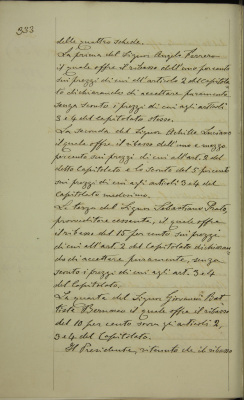 333
delle quattro schede.
La prima del Signor Angelo Ferrero
il quale offre il ribasso dell'uno percento
sui prezzi di cui all'articolo 2 del Capitola
to dichiarando di accettare puramente
senza sconto i prezzi di cui agli articoli
3 e 4 del Capitolato stesso.
La seconda del Signor Achille Luciano
il quale offre il ribasso dell'uno e mezzo
percento sui prezzi di cui all'art. 2 del
detto Capitolato e lo sconto del 5 percento
sui prezzi di cui agli articoli 3 e 4 del
Capitolato medesimo.
La terza del Signor Sebastiano
proveditore cessante, il quale offre
il ribasso del 15 per cento sui prezzi
di cui all'art. 2 del Capitolato dichiaran
do di accettare puramente, senza
sconto i prezzi di cui agli art. 3 e 4
del Capitolato.
La quarta del Signor Giovanni Bat
tista il quale offre il ribasso
del 10 per cento sugli articoli 2,
3 e 4 del Capitolato.
Il Presidente, ritenuto che il ribasso